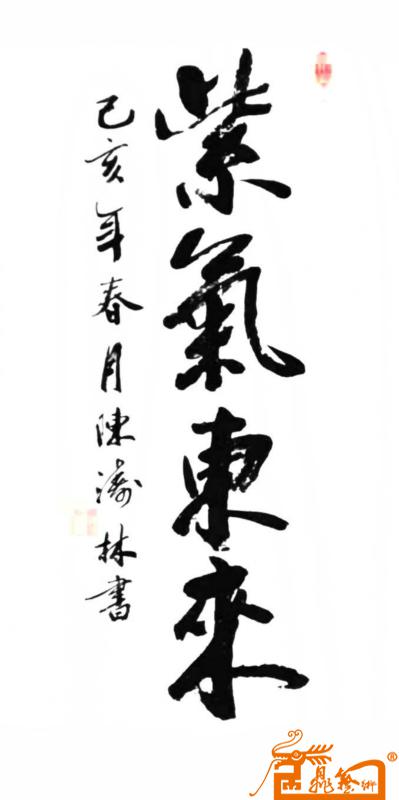 紫氣東來
己亥年春月陳濤林書